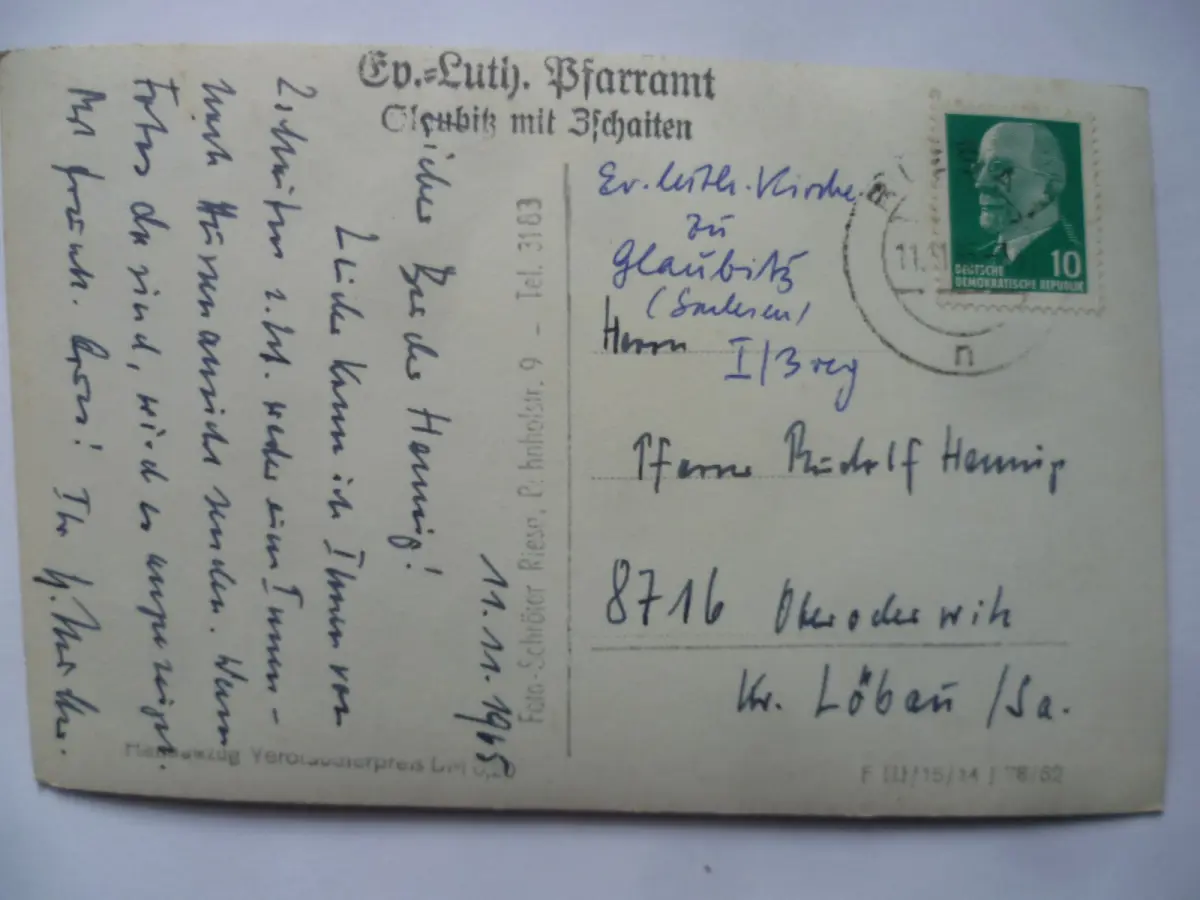 Ev.=Luth. Pfarramt
Glaubitz mit Zschaiten
11.11.1965
Lieber Bruder Hennig!
Leider kann ich Ihnen von
Zschaiten z. Zt. weder eine Innen-
noch Aussenansicht senden. Wenn
Fotos da sind, wird es angezeigt.
Mit freundl. Gruss! Ihr
Foto-Schröter Riesa, Bahnhofstr. 9 - Tel. 3183
Handabzug Verbraucherpreis DM 0,20
DEUTSCHE
DEMOKRATISCHE REPUBLIK
10
11.
Ev. luth. Kirche
zu
Glaubitz
(Sachsen)
I/3 reg
Herrn
Pfarrer Rudolf Hennig
8716 Oberoderwitz
Kr. Löbau /Sa.
F III/15/14 | 76/62